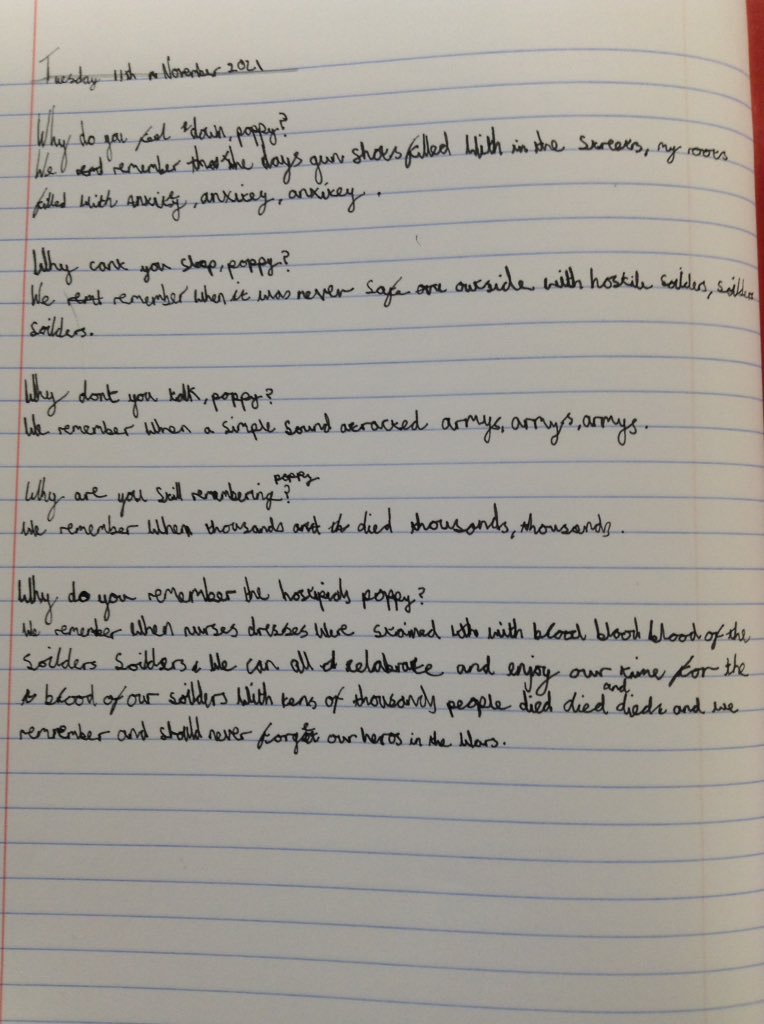 Tuesday 11th November 2021
Why do you feel down, poppy?
We remember the days gun shots filled with in the streets, my roots
filled with anxity, anxitey, anxitey.
Why cant you sleep, poppy?
We remember when it was never safe outside with hostile soilders, soilders
soilders.
Why dont you talk, poppy?
We remember when a simple sound attracked armys, armys, armys.
Why are you still remembering poppy?
We remember when thousands died thousands, thousands.
Why do you remember the hostpitals poppy?
We remember when nurses dresses were stained with blood blood blood of the
soilders soilders. We can all celabrate and enjoy our time for the
blood of our soilders with tens of thousands people died died and died and we
remember and should never forget our heros in the wars.